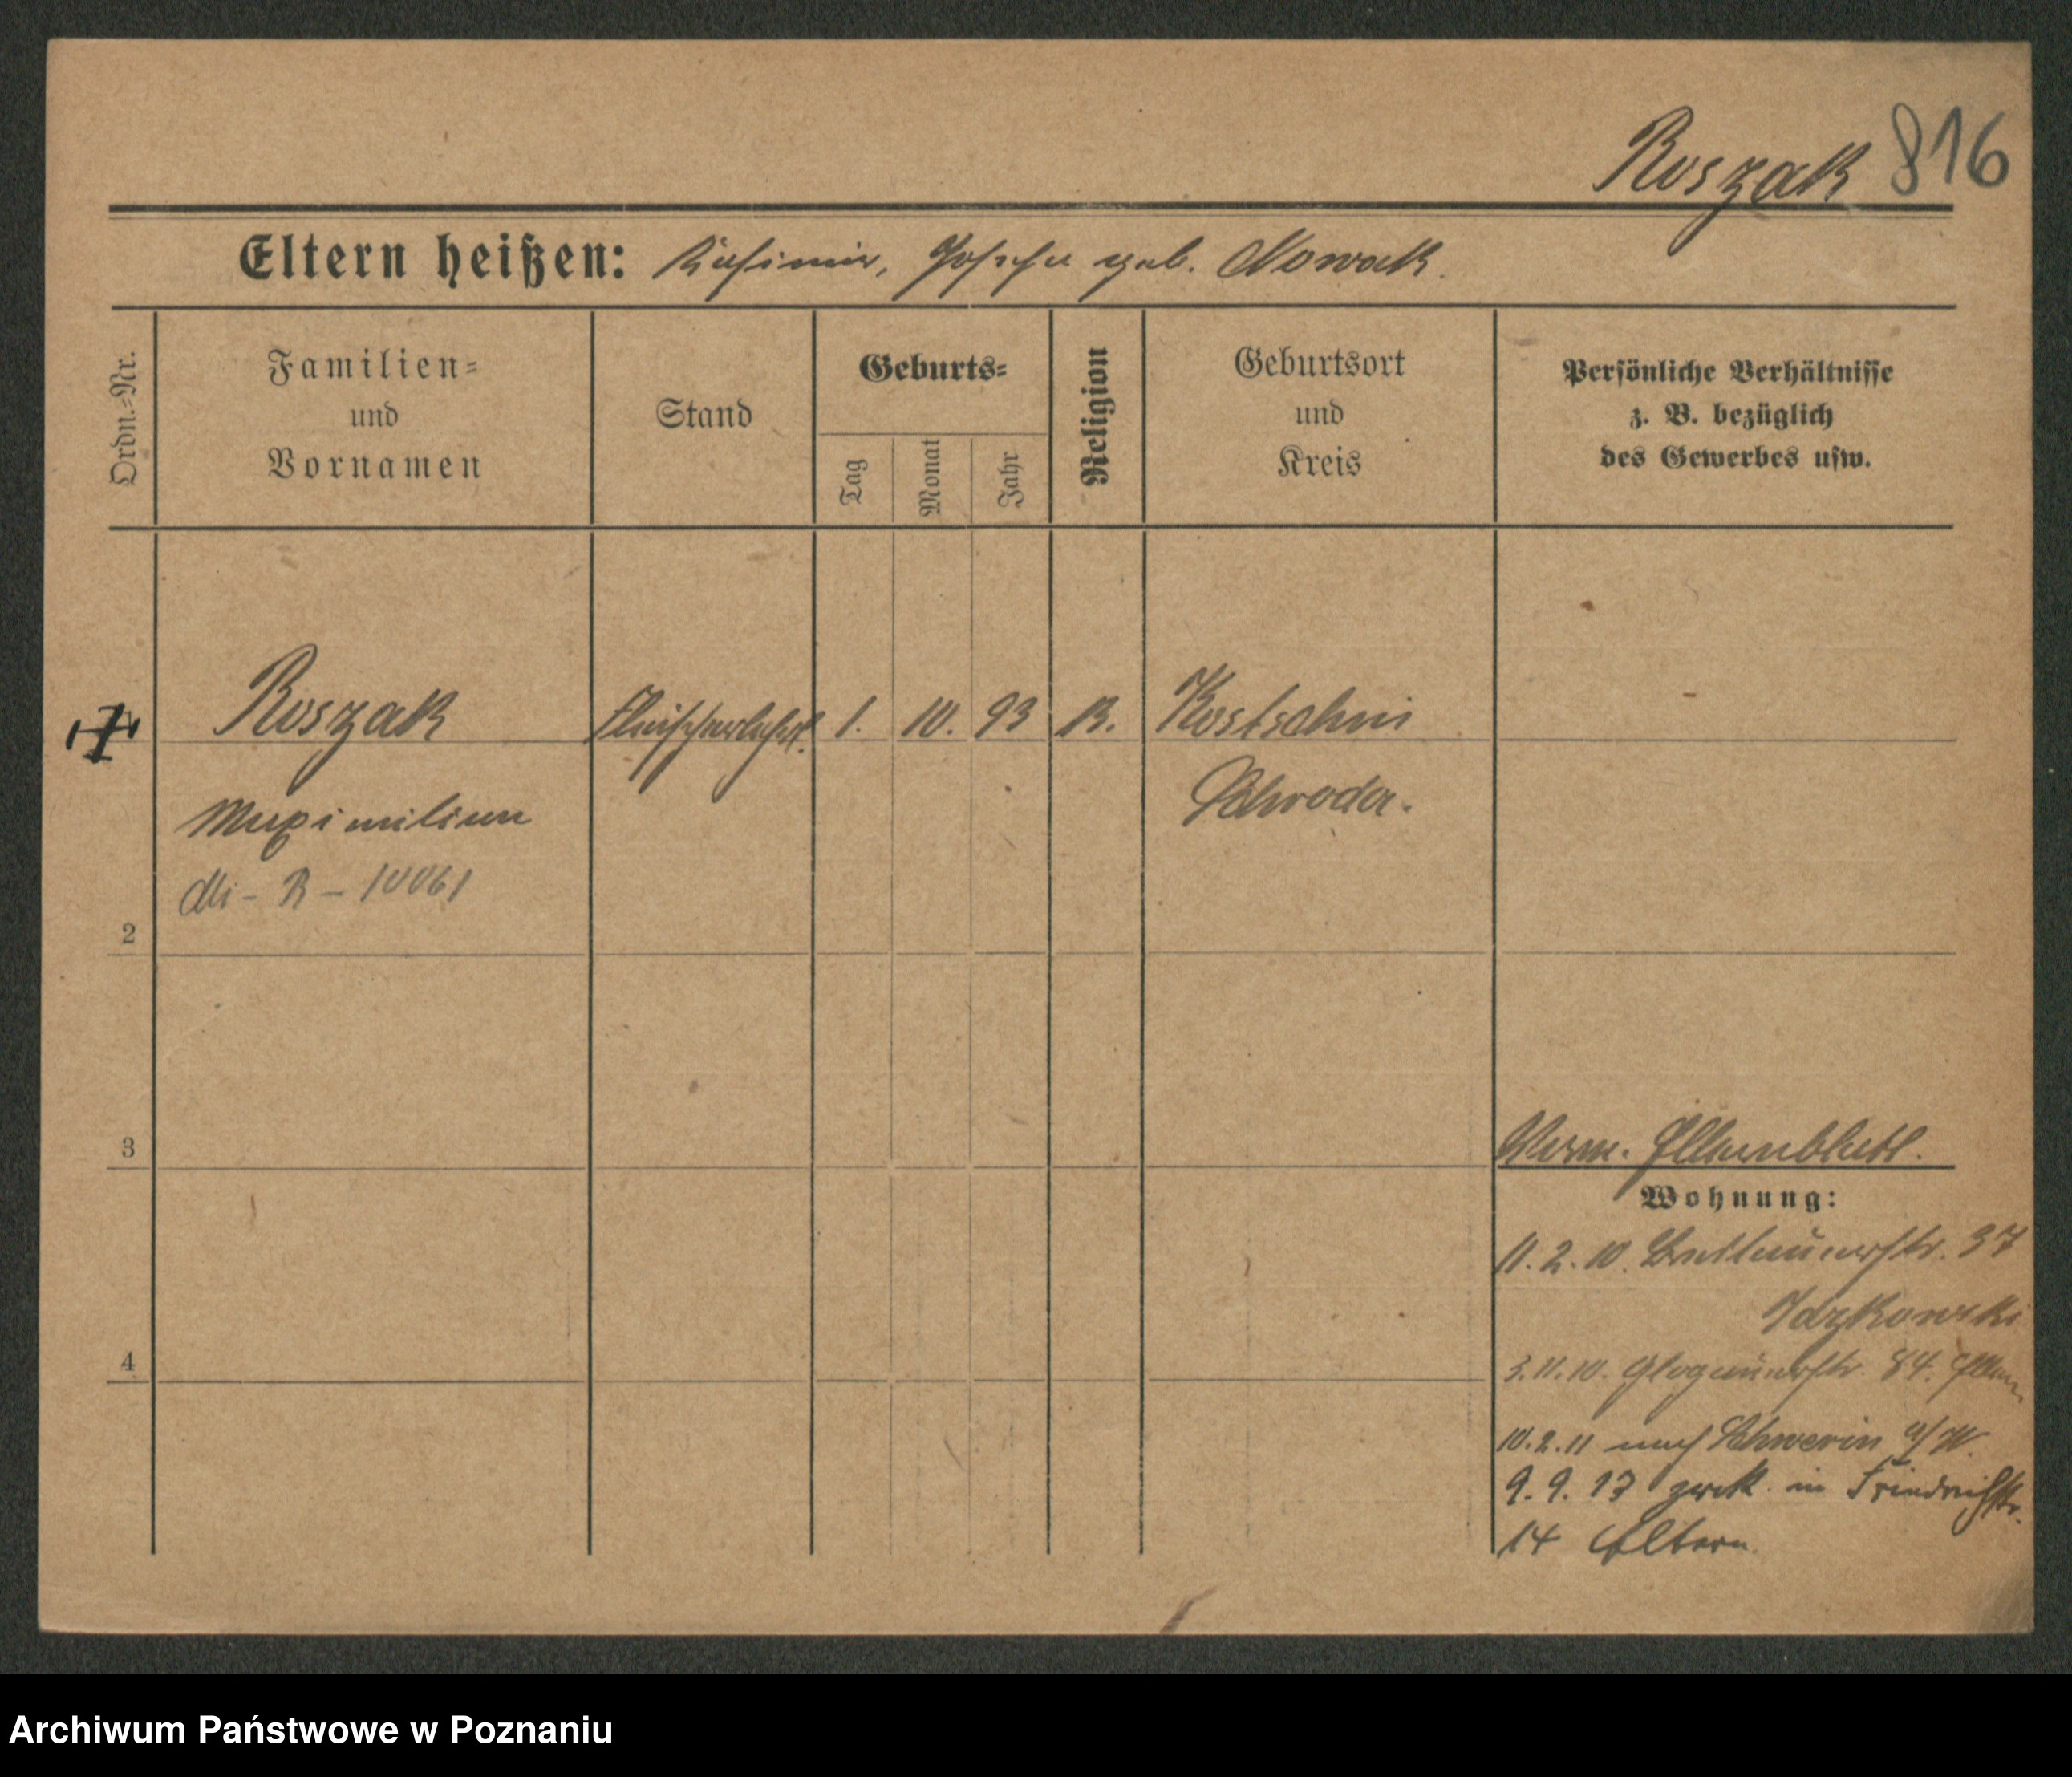 Roszak 816
Eltern heißen: Kasimir, Josefa geb. Nowak.
Ordn.-Nr.
Familien-
und
Vornamen
Stand
Geburts-
Tag
Monat
Jahr
Religion
Geburtsort
und
Kreis
Persönliche Verhältnisse
z. B. bezüglich
des Gewerbes usw.
1 Roszak Fleischerlehrl. 1. 10. 93 K. Kostschin
Schroda.
Maximilian
Mi - R - 10061
2
3
Verm. Elternblatt.
Wohnung:
11. 2. 10. 37
Idzkowski
3. 11. 10. Glogauerstr. 84. Eltern
10. 2. 11 nach Schwerin a/W.
9. 9. 13 zurk. in Friedrichstr.
14 Eltern.
4
Archiwum Państwowe w Poznaniu